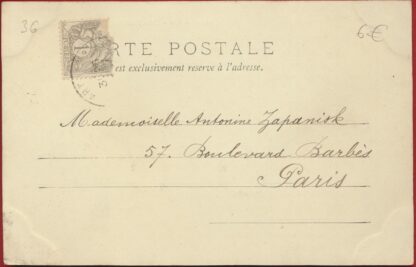 36 6€
RTE POSTALE
est exclusivement reservé à l'adresse.
Mademoiselle Antonine Zapanisk
57. Boulevard Barbès
Paris